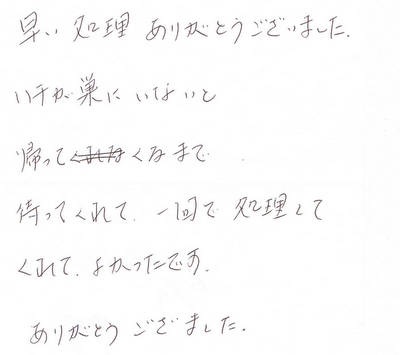 早い 処理 ありがとうございました.
ハチが巣に いないと
帰ってくるまで
待ってくれて. 一回で 処理して
くれて. よかったです.
ありがとう ございました.